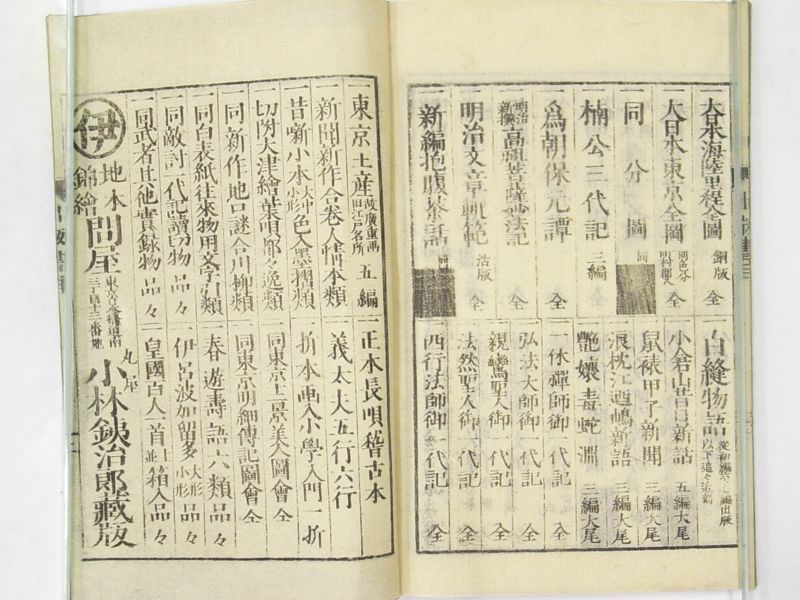 大日本海陸里程全圖 銅版 全
大日本東京全圖 同色分 明村御人 全
同分圖 同
楠公三代記 三編
爲朝保元譚 全
明治新撰 高祖日蓮妙法記 全
明治文章軌範 活版 全
新編抱腹茶話
白縫物語 從初編六十七編出版 以下追々近刻
小倉山昔日新話 五編大尾
鼠裱甲子新聞 三編大尾
浪枕江廼嶋新語 三編大尾
艶孃毒蛇淵 三編大尾
一休禪師御一代記 全
弘法大師御一代記 全
親鸞聖人御一代記 全
法然聖人御一代記 全
西行法師御一代記 全
東京土産 故廣重画 旧江戸名所 五編
新聞新作合卷人情本類
昔噺小本 大中小形 色入墨摺類
切附大津繪葉唄都々逸類
同新作地口謎合川柳類
同白表紙往來物用文字引類
同敵討一代記讀切物 品々
同武者其他實録物 品々
正本長唄稽古本
義太夫五行六行
折本画入小學入門一折
同東京十二景美人圖會 全
同東京明細傳記圖會 全
春遊壽語六類品々
伊呂波加留多 大形 小形 品々
皇國百人一首 上並 箱入品々
伊
地本
錦繪
問屋
東京京橋區南
三丁目十三番地
丸屋
小林鉄治郎藏版